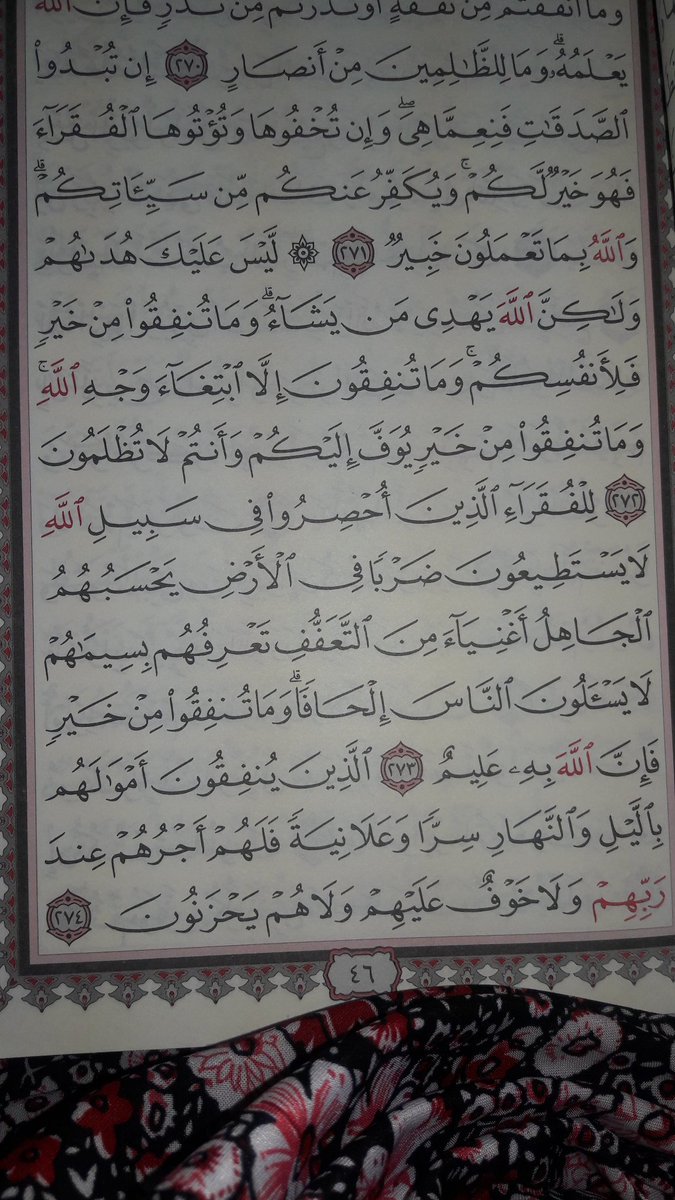 وَمَآ أَنفَقْتُم مِّن نَّفَقَةٍ أَوْ نَذَرْتُم مِّن نَّذْرٍ فَإِنَّ ٱللَّهَ
يَعْلَمُهُۥۗ وَمَا لِلظَّٰلِمِينَ مِنْ أَنصَارٍ ٢٧٠ إِن تُبْدُوا۟
ٱلصَّدَقَٰتِ فَنِعِمَّا هِىَۖ وَإِن تُخْفُوهَا وَتُؤْتُوهَا ٱلْفُقَرَآءَ
فَهُوَ خَيْرٌ لَّكُمْۚ وَيُكَفِّرُ عَنكُم مِّن سَيِّـَٔاتِكُمْۗ
وَٱللَّهُ بِمَا تَعْمَلُونَ خَبِيرٌ ٢٧١ ۞ لَّيْسَ عَلَيْكَ هُدَىٰهُمْ
وَلَٰكِنَّ ٱللَّهَ يَهْدِى مَن يَشَآءُۗ وَمَا تُنفِقُوا۟ مِنْ خَيْرٍ
فَلِأَنفُسِكُمْۚ وَمَا تُنفِقُونَ إِلَّا ٱبْتِغَآءَ وَجْهِ ٱللَّهِۚ
وَمَا تُنفِقُوا۟ مِنْ خَيْرٍ يُوَفَّ إِلَيْكُمْ وَأَنتُمْ لَا تُظْلَمُونَ
٢٧٢ لِلْفُقَرَآءِ ٱلَّذِينَ أُحْصِرُوا۟ فِى سَبِيلِ ٱللَّهِ
لَا يَسْتَطِيعُونَ ضَرْبًا فِى ٱلْأَرْضِ يَحْسَبُهُمُ
ٱلْجَاهِلُ أَغْنِيَآءَ مِنَ ٱلتَّعَفُّفِ تَعْرِفُهُم بِسِيمَٰهُمْ
لَا يَسْـَٔلُونَ ٱلنَّاسَ إِلْحَافًاۗ وَمَا تُنفِقُوا۟ مِنْ خَيْرٍ
فَإِنَّ ٱللَّهَ بِهِۦ عَلِيمٌ ٢٧٣ ٱلَّذِينَ يُنفِقُونَ أَمْوَٰلَهُم
بِٱلَّيْلِ وَٱلنَّهَارِ سِرًّا وَعَلَانِيَةً فَلَهُمْ أَجْرُهُمْ عِندَ
رَبِّهِمْ وَلَا خَوْفٌ عَلَيْهِمْ وَلَا هُمْ يَحْزَنُونَ ٢٧٤
٤٦